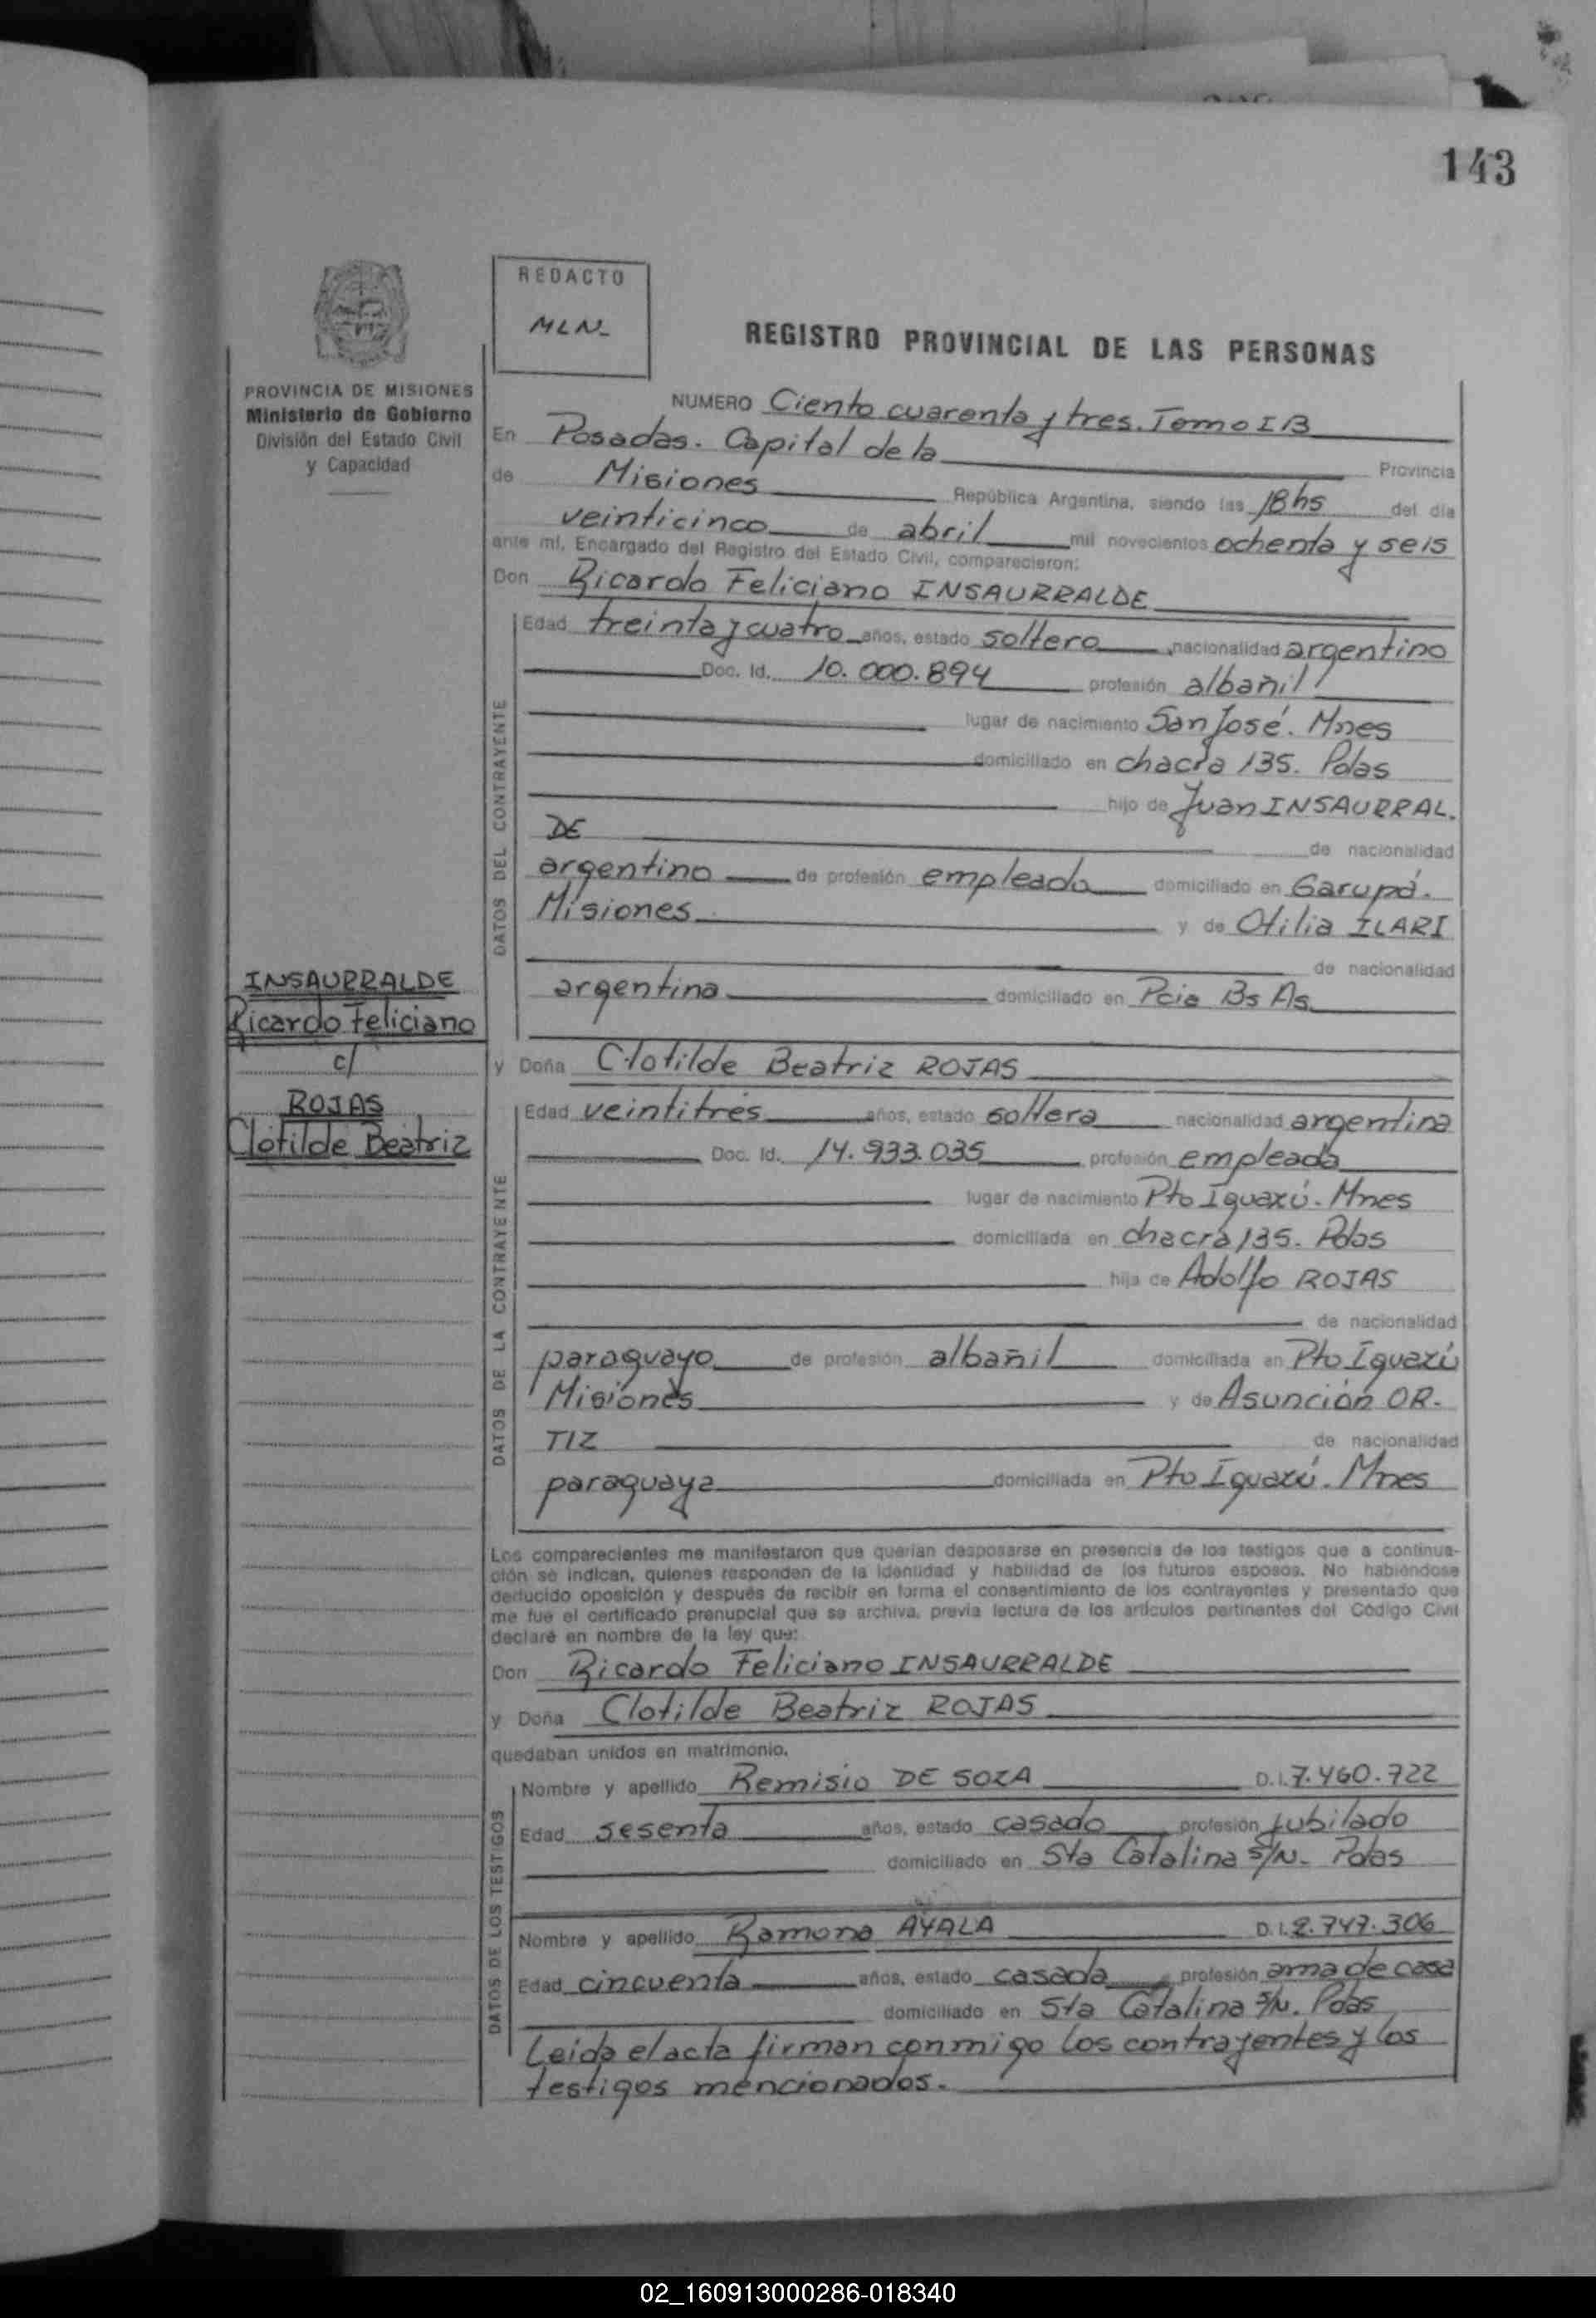 143
REDACTO
MLN_
REGISTRO PROVINCIAL DE LAS PERSONAS
PROVINCIA DE MISIONES
Ministerio de Gobierno
División del Estado Civil
y Capacidad
NUMERO Ciento cuarenta y tres. Tomo I B
En Posadas. Capital de la Provincia
de Misiones República Argentina, siendo las 18 hs del día
veinticinco de abril mil novecientos ochenta y seis
ante mí, Encargado del Registro del Estado Civil, comparecieron:
Don Ricardo Feliciano INSAURRALDE
DATOS DEL CONTRAYENTE
Edad treinta y cuatro años, estado soltero nacionalidad argentino
Doc. Id. 10.000.894 profesión albañil
lugar de nacimiento San José. Mnes
domiciliado en chacra 135. Pdas
hijo de Juan INSAURRAL.
DE de nacionalidad
argentino de profesión empleado domiciliado en Garupá.
Misiones y de Otilia ILARI
de nacionalidad
argentina domiciliado en Pcia Bs As
INSAURRALDE
Ricardo Feliciano
c/
ROJAS
Clotilde Beatriz
y Doña Clotilde Beatriz ROJAS
DATOS DE LA CONTRAYENTE
Edad veintitrés años, estado soltera nacionalidad argentina
Doc. Id. 14.933.035 profesión empleada
lugar de nacimiento Pto Iguazú. Mnes
domiciliada en chacra 135. Pdas
hija de Adolfo ROJAS
de nacionalidad
paraguayo de profesión albañil domiciliada en Pto Iguazú
Misiones y de Asunción OR-
TIZ de nacionalidad
paraguaya domiciliada en Pto Iguazú. Mnes
Los comparecientes me manifestaron que querían desposarse en presencia de los testigos que a continua-
ción se indican, quienes responden de la identidad y habilidad de los futuros esposos. No habiéndose
deducido oposición y después de recibir en forma el consentimiento de los contrayentes y presentado que
me fue el certificado prenupcial que se archiva, previa lectura de los artículos pertinentes del Código Civil
declaré en nombre de la ley que:
Don Ricardo Feliciano INSAURRALDE
y Doña Clotilde Beatriz ROJAS
quedaban unidos en matrimonio.
DATOS DE LOS TESTIGOS
Nombre y apellido Remisio DE SOZA D.I. 7.460.722
Edad sesenta años, estado casado profesión jubilado
domiciliado en Sta Catalina S/N. Pdas
Nombre y apellido Ramona AYALA D.I. 2.747.306
Edad cincuenta años, estado casada profesión ama de casa
domiciliado en Sta Catalina S/N. Pdas
Leída el acta firman conmigo los contrayentes y los
testigos mencionados.
02_160913000286-018340